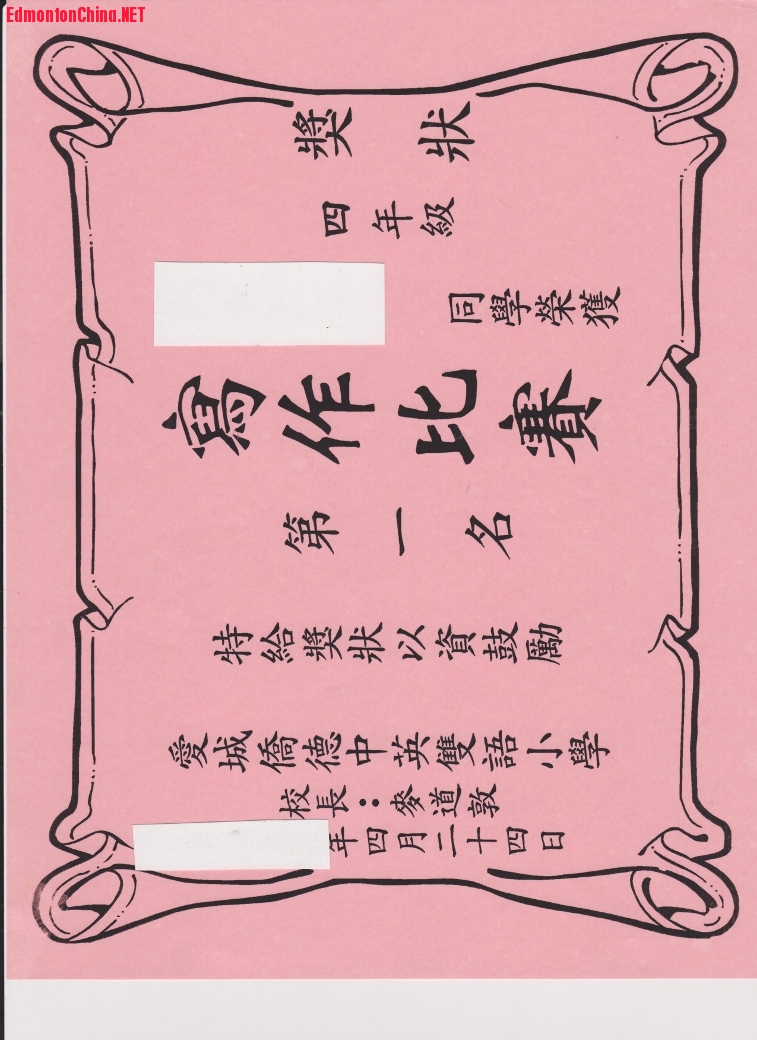 EdmontonChina.NET
獎狀
四年級
同學榮獲
寫作比賽
第一名
特給獎狀以資鼓勵
愛城僑德中英雙語小學
校長：麥道敦
年四月二十四日